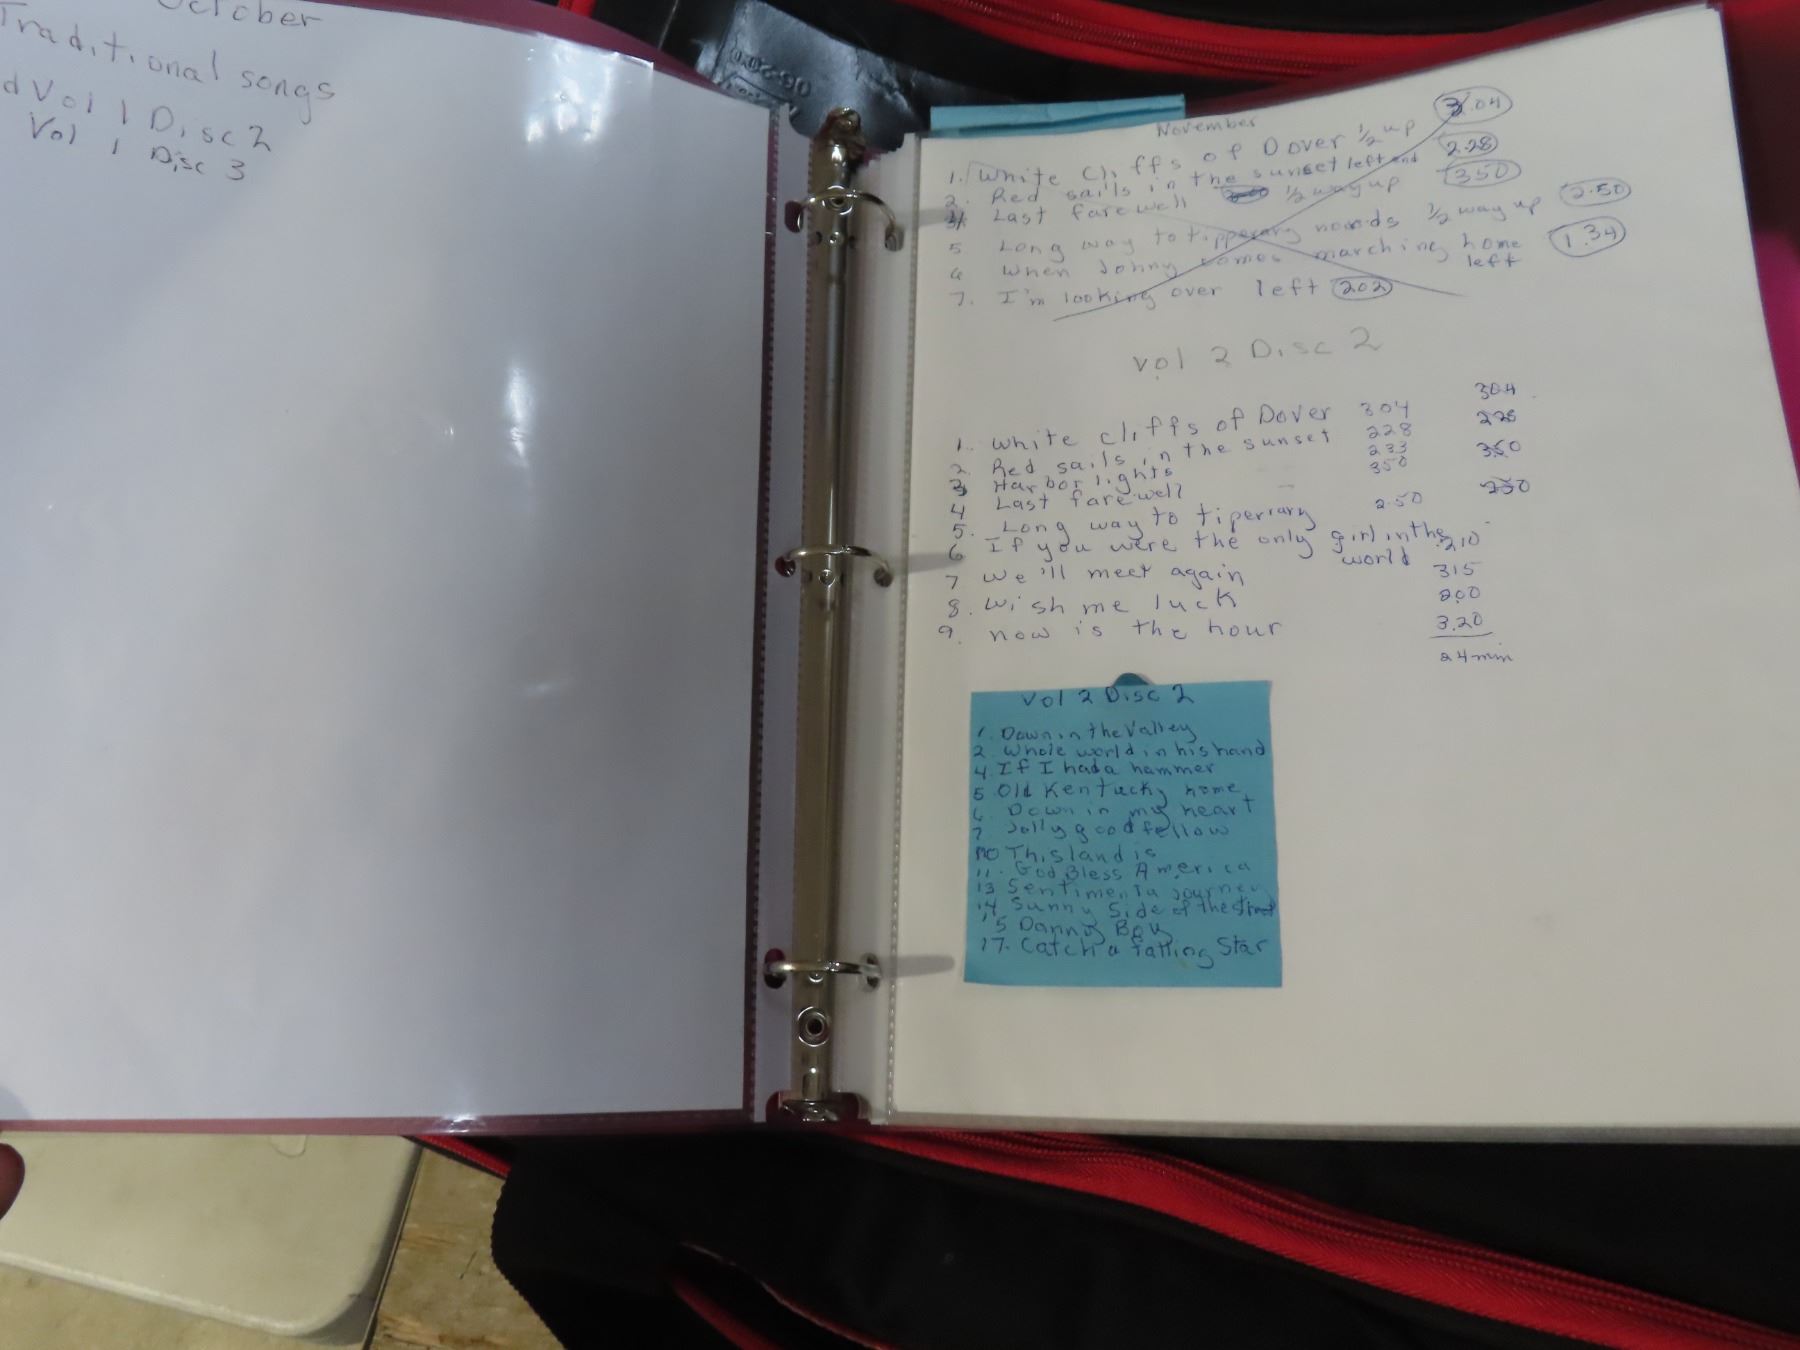 October
Traditional songs
d Vol 1 Disc 2
Vol 1 Disc 3
November
1. White Cliffs of Dover 1/2 up 3.04
2. Red sails in the sunset left end 2.28
4 Last farewell 1/2 way up 350
5 Long way to tipperary 1/2 way up 2.50
6 When Johny comes marching home 1.34
left
7. I'm looking over left 202
Vol 2 Disc 2
304
1. White cliffs of Dover 304 228
2. Red sails in the sunset 228
3 Harbor lights 233 350
4 Last farewell 350
250
5. Long way to tiperrary 2.50
6 If you were the only girl in the 210
world
7 we'll meet again 315
8. wish me luck 200
9. now is the hour 3.20
24 min
Vol 2 Disc 2
1. Down in the Valley
2 Whole world in his hand
4 If I had a hammer
5 Old Kentucky home
6 Down in my heart
7 Jolly good fellow
10 This land is
11. God Bless America
13 Sentimenta journey
14 Sunny Side of the Street
15 Danny Boy
17. Catch a falling Star